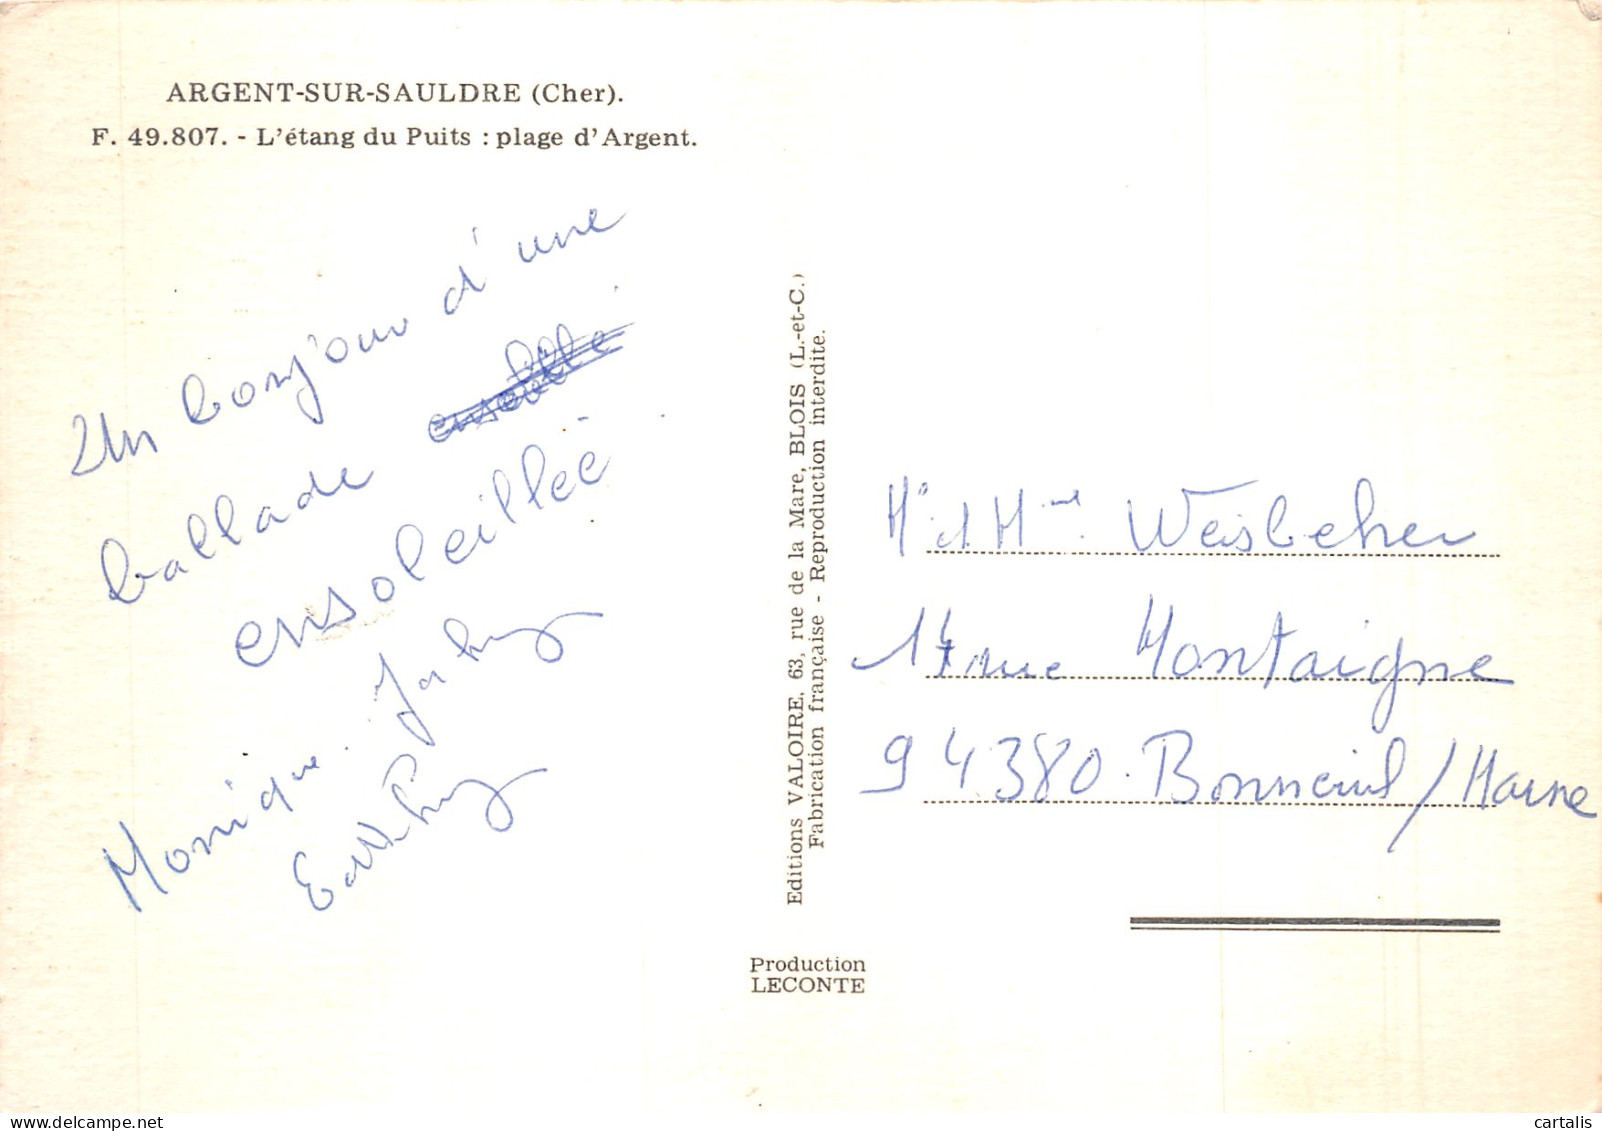 ARGENT-SUR-SAULDRE (Cher).
F. 49.807. - L'étang du Puits : plage d'Argent.
Un bonjour d'une
ballade
ensoleillée
Monique.
Editions VALOIRE, 63, rue de la Mare, BLOIS (L.-et-C.)
Fabrication française - Reproduction interdite.
Mr et Mme Weisbecher
rue Montaigne
94380 Bonneuil/Marne
Production
LECONTE
cartalis